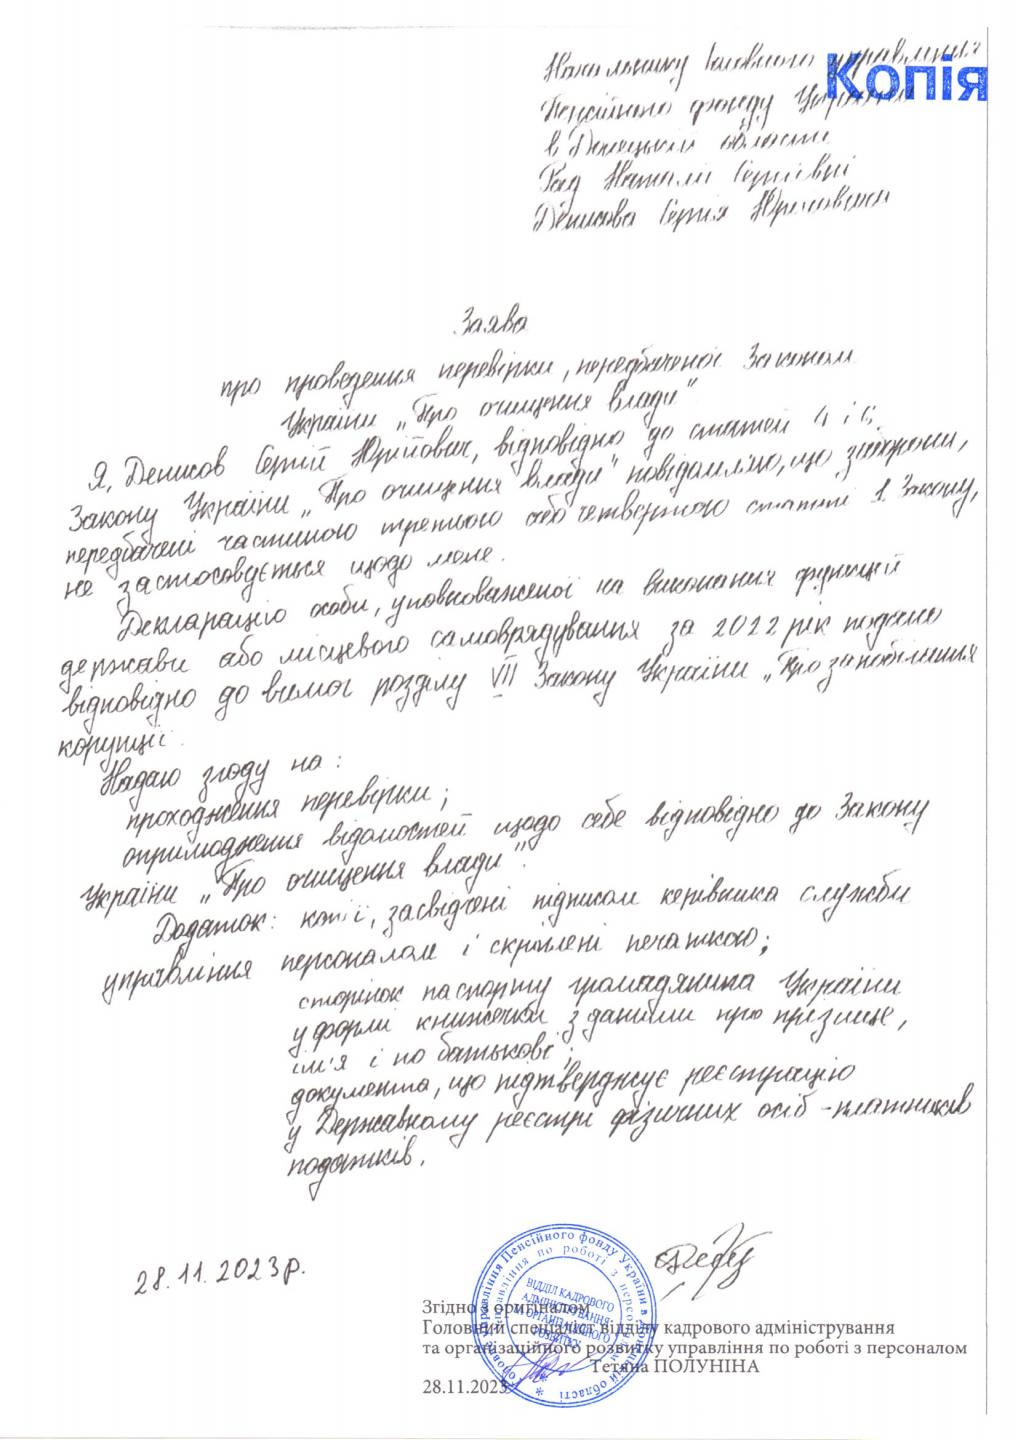 Копія
Начальнику Головного управління
Пенсійного фонду України
в Донецькій області
Рад Наталії Сергіївні
Денисова Сергія Юрійовича
Заява
про проведення перевірки, передбаченої Законом
України „Про очищення влади"
Я, Денисов Сергій Юрійович, відповідно до статей 4 і 6
Закону України „Про очищення влади" повідомляю, що заборони,
передбачені частиною третьою або четвертою статті 1 Закону,
не застосовується щодо мене.
Декларацію особи, уповноваженої на виконання функцій
держави або місцевого самоврядування за 2022 рік подано
відповідно до вимог розділу VII Закону України „Про запобігання
корупції.
Надаю згоду на:
проходження перевірки;
оприлюднення відомостей щодо себе відповідно до Закону
України „Про очищення влади".
Додаток: копії, засвідчені підписом керівника служби
управління персоналом і скріплені печаткою;
сторінок паспорту громадянина України
у формі книжечки з даними про прізвище,
ім'я і по батькові;
документа, що підтверджує реєстрацію
у Державному реєстрі фізичних осіб-платників
податків.
28.11.2023р.
Головне управління Пенсійного фонду України в Донецькій області
управління по роботі з персоналом
ВІДДІЛ КАДРОВОГО
АДМІНІСТРУВАННЯ
ТА ОРГАНІЗАЦІЙНОГО
РОЗВИТКУ
Згідно з оригіналом
Головний спеціаліст відділу кадрового адміністрування
та організаційного розвитку управління по роботі з персоналом
Тетяна ПОЛУНІНА
28.11.2023